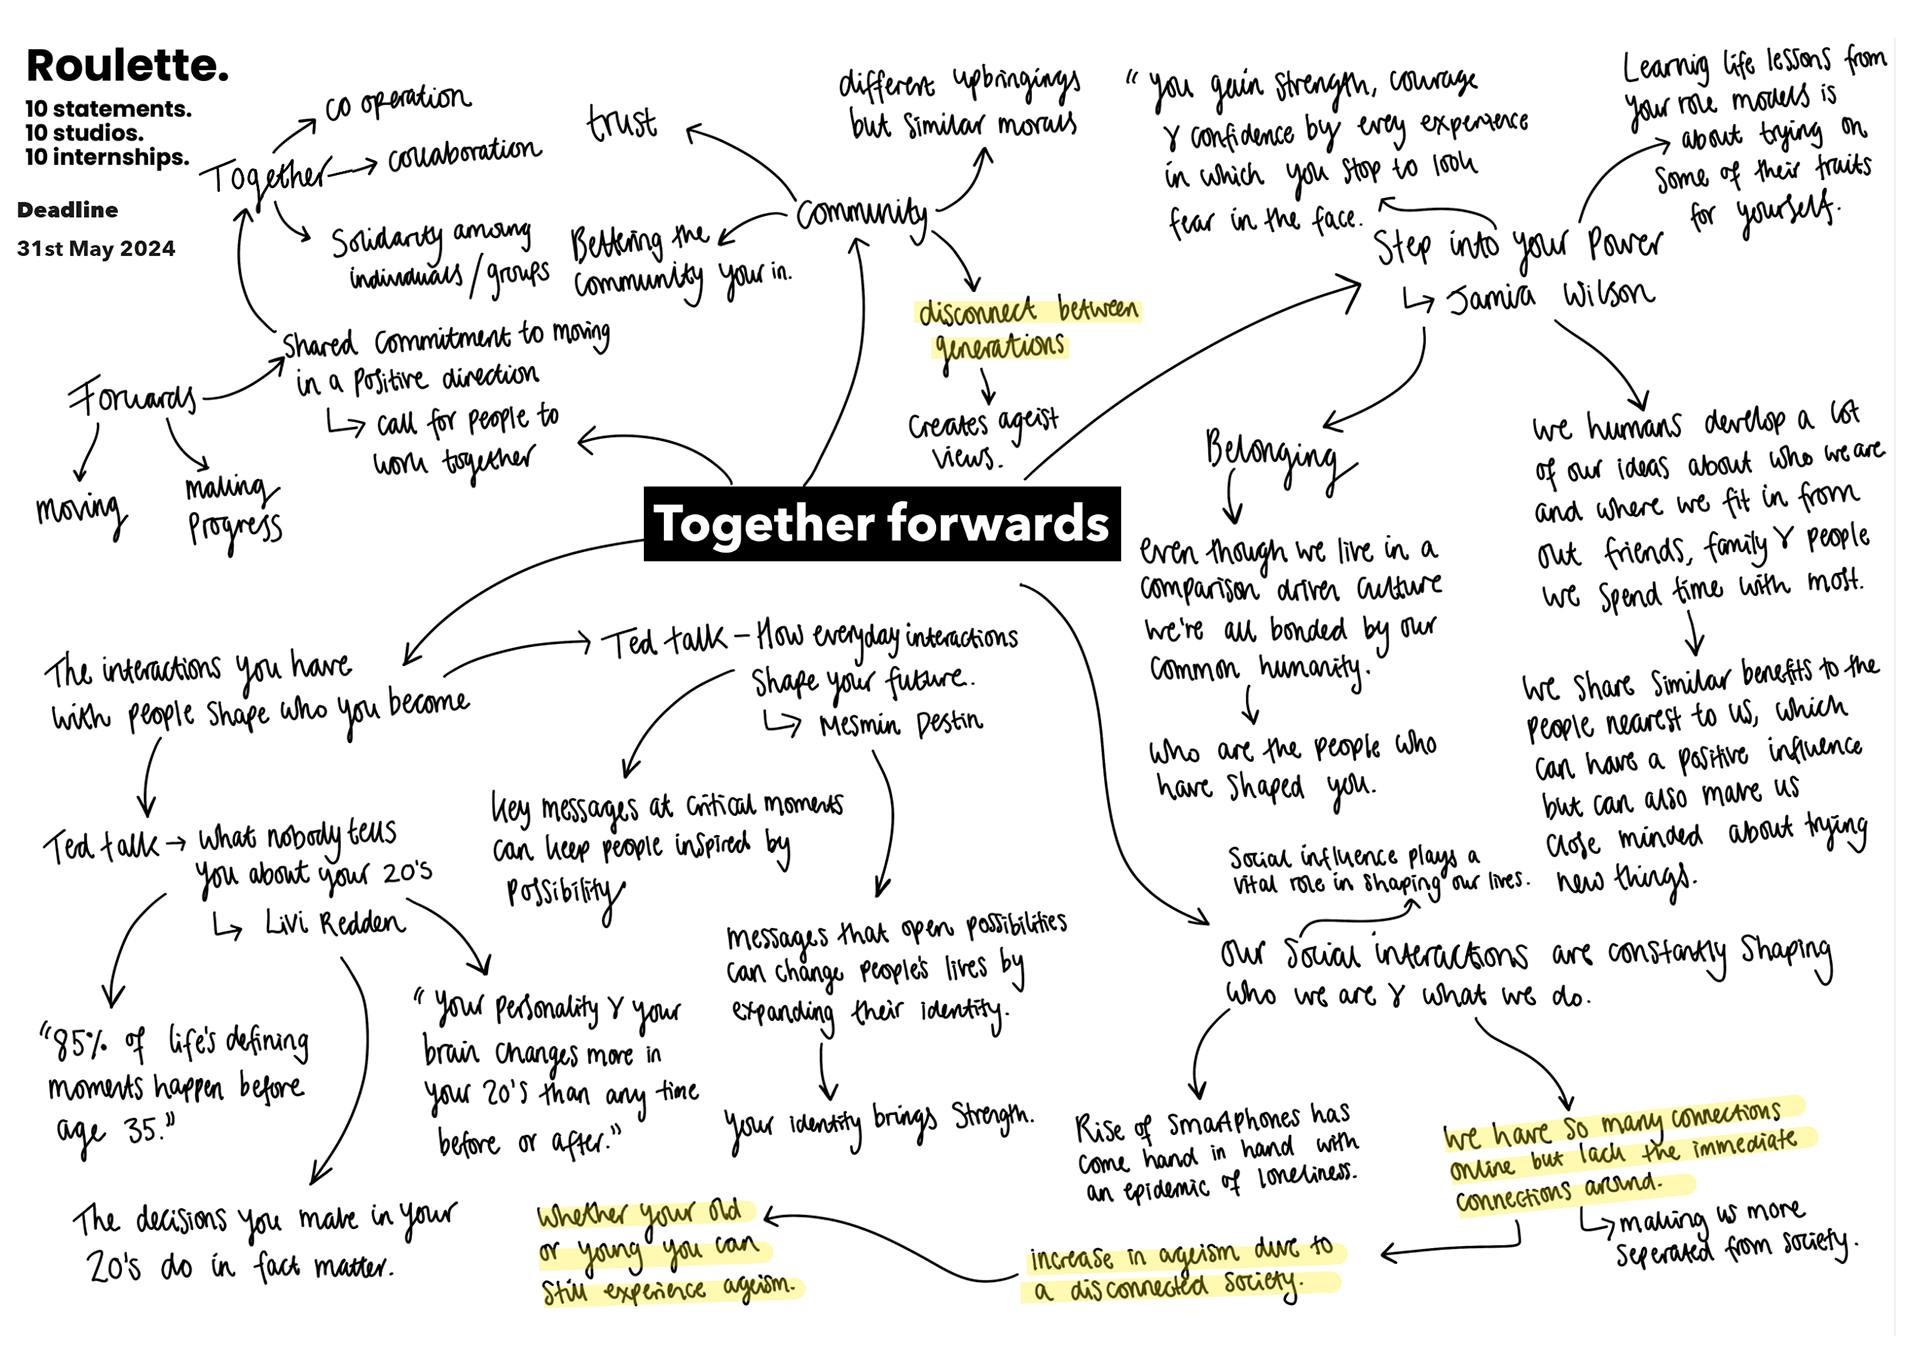 Roulette.
10 statements.
10 studios.
10 internships.
Deadline
31st May 2024
Together
co operation
collaboration
Solidarity among
individuals / groups
Forwards
moving
making
progress
Shared commitment to moving
in a positive direction
call for people to
work together
trust
different upbringings
but similar morals
Community
Bettering the
community your in.
disconnect between
generations
Creates ageist
views.
"you gain strength, courage
& confidence by every experience
in which you stop to look
fear in the face.
Learnig life lessons from
your role models is
about trying on
some of their traits
for yourself.
Step into your Power
Jamia Wilson
Belonging
even though we live in a
comparison driven culture
we're all bonded by our
common humanity.
who are the people who
have shaped you.
we humans develop a lot
of our ideas about who we are
and where we fit in from
out friends, family & people
we spend time with most.
we share similar benefits to the
people nearest to us, which
can have a positive influence
but can also make us
close minded about trying
new things.
Together forwards
The interactions you have
with people shape who you become
Ted talk – How everyday interactions
shape your future.
Mesmin Destin
key messages at critical moments
can keep people inspired by
possibility
messages that open possibilities
can change people's lives by
expanding their identity.
your identity brings strength.
Ted talk → what nobody tells
you about your 20's
Livi Redden
"85% of life's defining
moments happen before
age 35."
"your personality & your
brain changes more in
your 20's than any time
before or after."
The decisions you make in your
20's do in fact matter.
Social influence plays a
vital role in shaping our lives.
our social interactions are constantly shaping
who we are & what we do.
Rise of smartphones has
come hand in hand with
an epidemic of loneliness.
we have so many connections
online but lack the immediate
connections around.
making us more
seperated from society.
increase in ageism due to
a disconnected society.
whether your old
or young you can
still experience ageism.